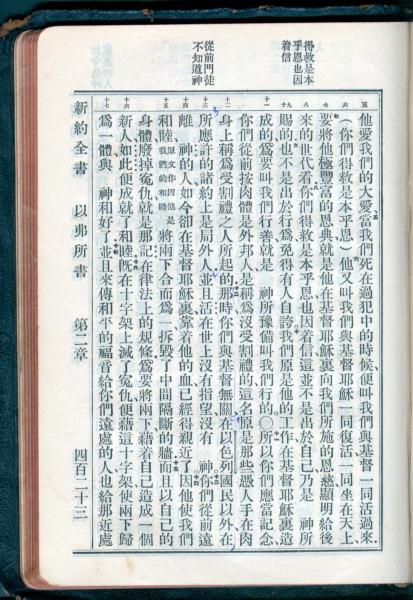 得救是本
乎恩也因
着信
從前門徒
不知道神
五 六 七 八 九十 十一 十二 十三 十四 十五 十六 十七
他愛我們的大愛當我們死在過犯中的時候便叫我們與基督一同活過來
(你們得救是本乎恩)他又叫我們與基督耶穌一同復活一同坐在天上
要將他極豐富的恩典就是他在基督耶穌裏向我們所施的恩慈顯明給後
來的世代看你們得救是本乎恩也因着信這並不是出於自己乃是 神所
賜的也不是出於行爲免得有人自誇我們原是他的工作在基督耶穌裏造
成的爲要叫我們行善就是 神所豫備叫我們行的○所以你們應當記念
你們從前按肉體是外邦人是稱爲沒受割禮的這名原是那些憑人手在肉
身上稱爲受割禮之人所起的那時你們與基督無關在以色列國民以外在
所應許的諸約上是局外人並且活在世上沒有指望沒有 神你們從前遠
離 神的人如今卻在基督耶穌裏靠着他的血已經得親近了因他使我們
和睦原文作因他是我們的和睦將兩下合而爲一拆毀了中間隔斷的牆而且以自己的
身體廢掉冤仇就是那記在律法上的規條爲要將兩下藉着自己造成一個
新人如此便成就了和睦既在十字架上滅了冤仇便藉這十字架使兩下歸
爲一體與 神和好了並且來傳和平的福音給你們遠處的人也給那近處
新約全書 以弗所書 第二章 四百二十三